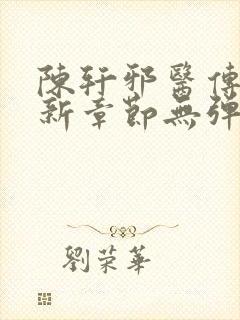 陳軒邪醫傳
新章節無彈
劉荣華